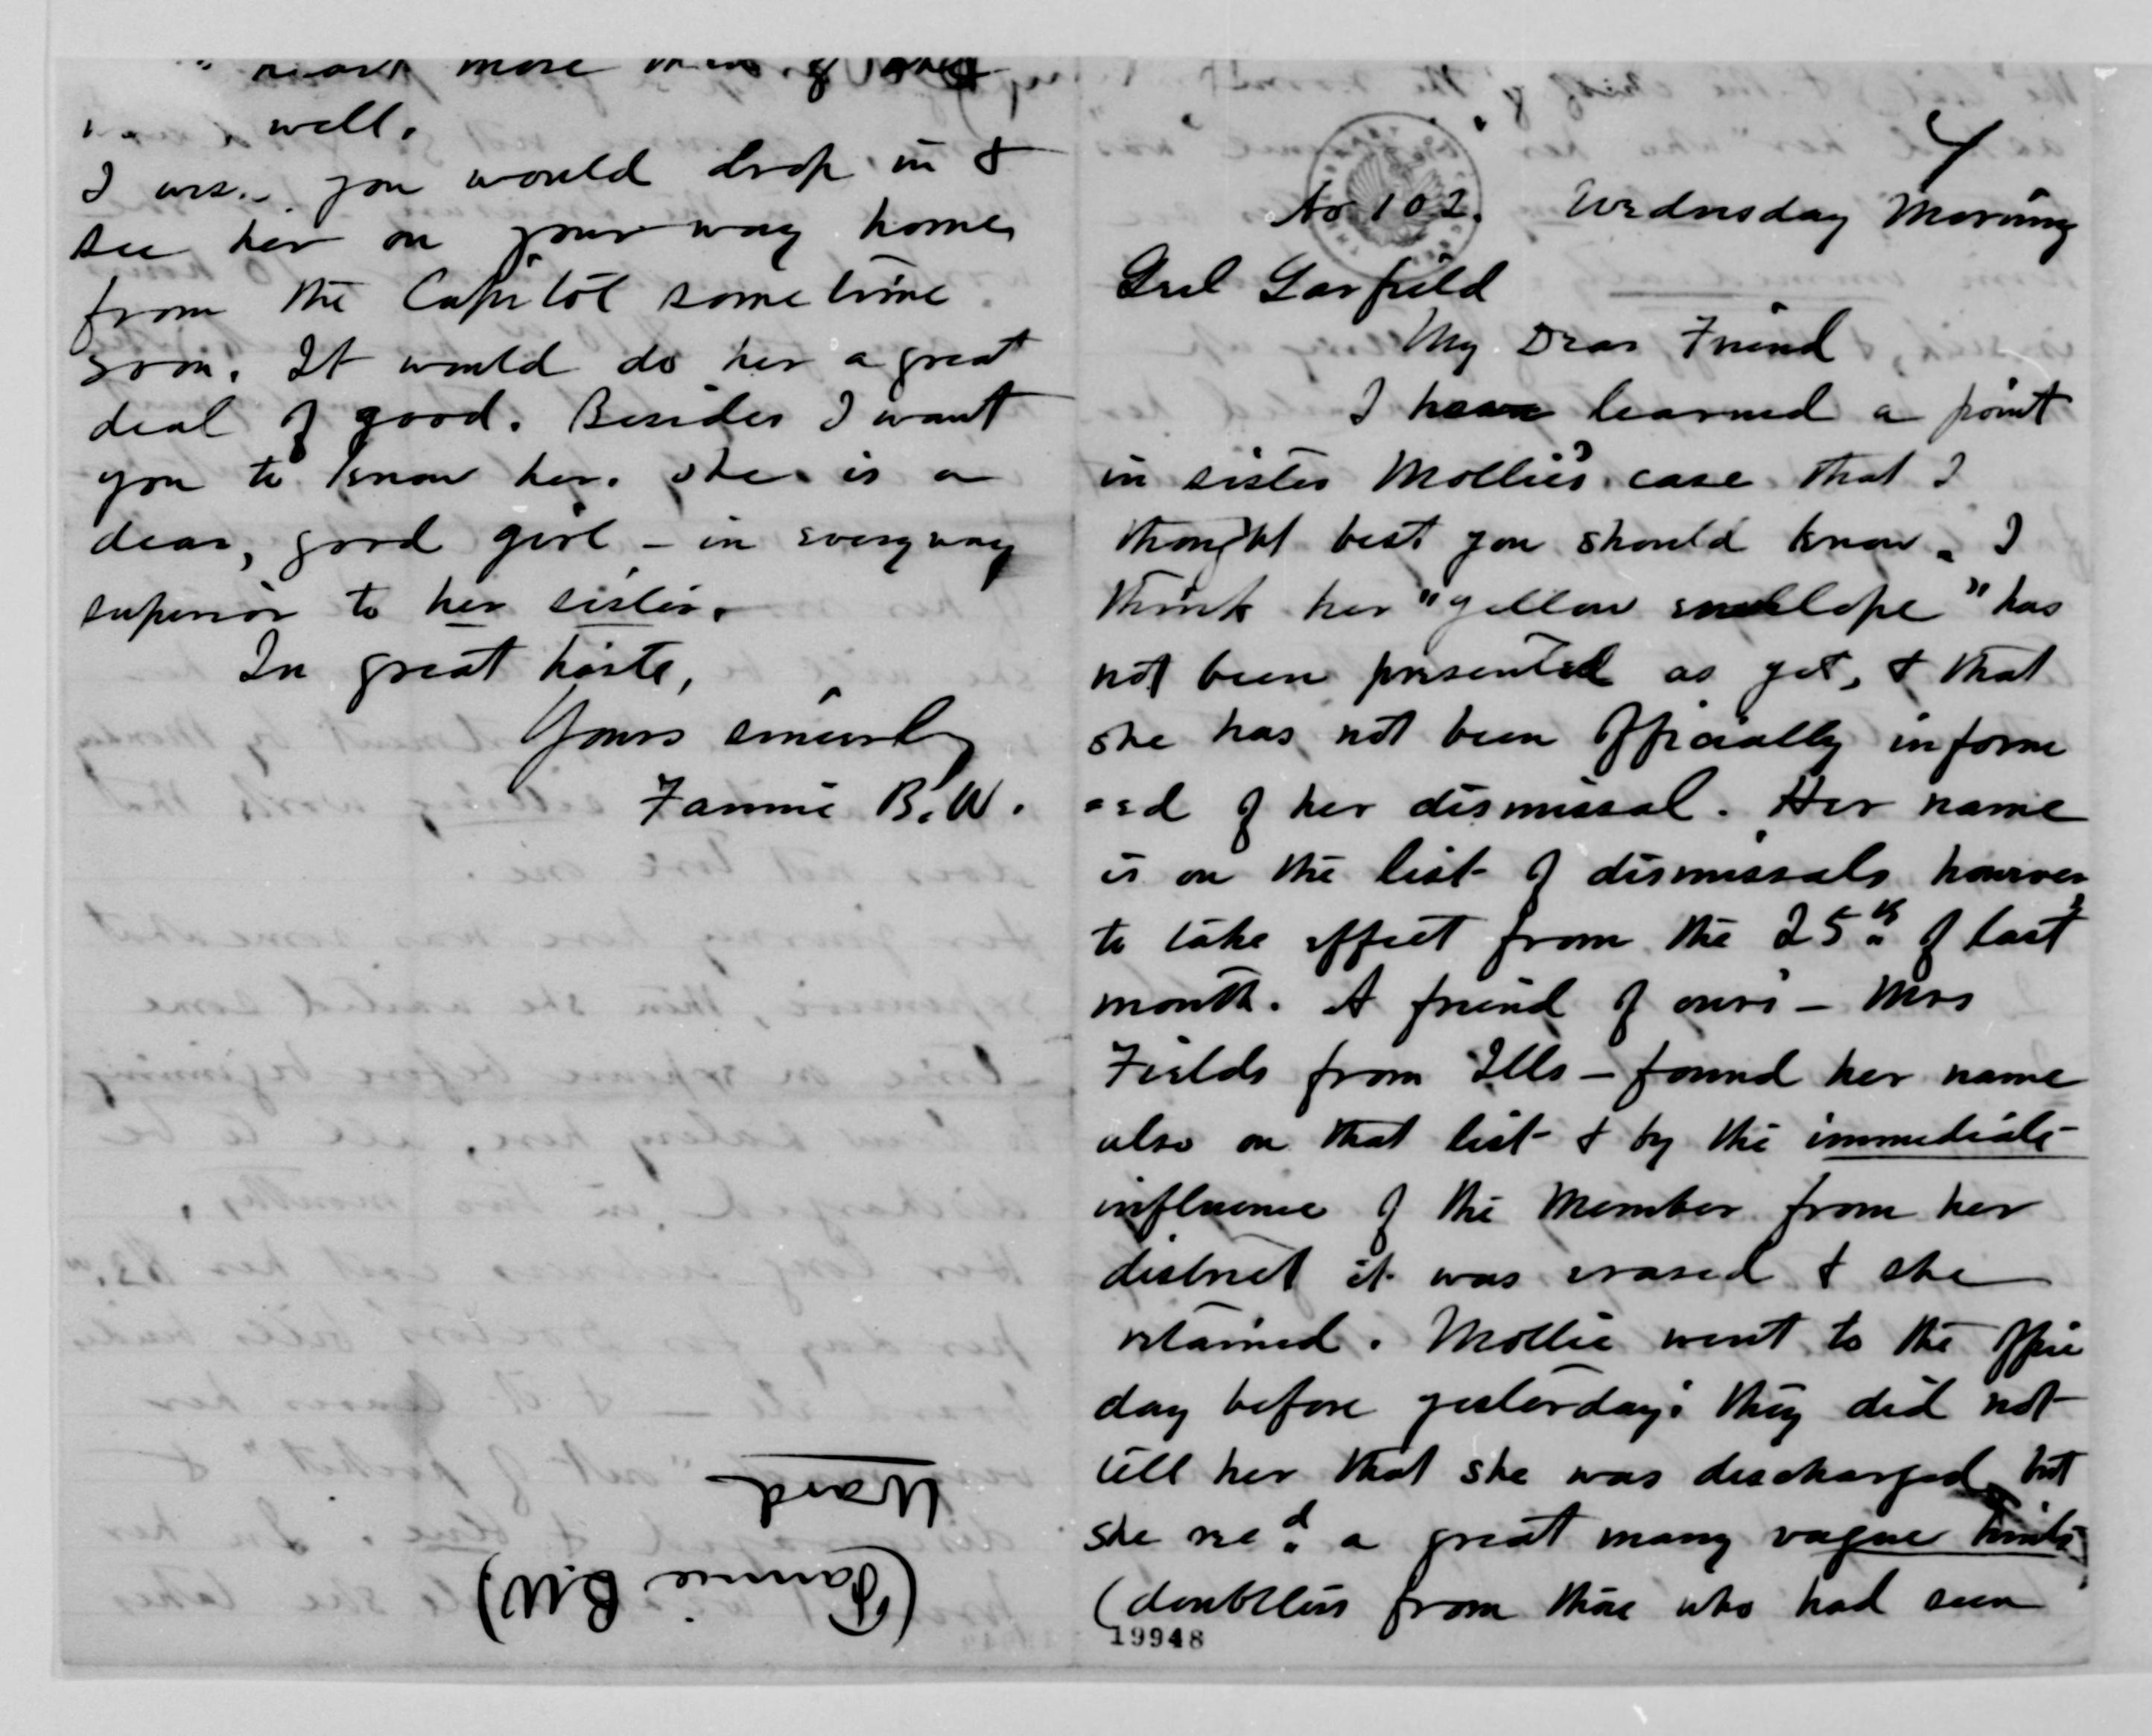 more
well.
I you would drop in &
see her on your way home
from the Capitol sometime
soon. It would do her a great
deal of good. Besides I want
you to know her. She is a
dear, good girl – in everyway
superior to her sister.
In great haste,
Yours sincerely
Fannie B. W.
Ward
(Fannie B.W)
4
No 102. Wednesday Morning
Genl Garfield
My Dear Friend
I have learned a point
in sister Mollie's case that I
thought best you should know. I
think her "yellow envelope" has
not been presented as yet, & that
she has not been officially inform
=ed of her dismissal. Her name
is on the list of dismissals however
to take effect from the 25th of last
month. A friend of ours – Mrs
Fields from Ills – found her name
also on that list & by the immediate
influence of the Member from her
district it was erased & she
retained. Mollie went to the office
day before yesterday: they did not
tell her that she was discharged but
she rec'd a great many vague hints
(doubtless from those who had seen
19948